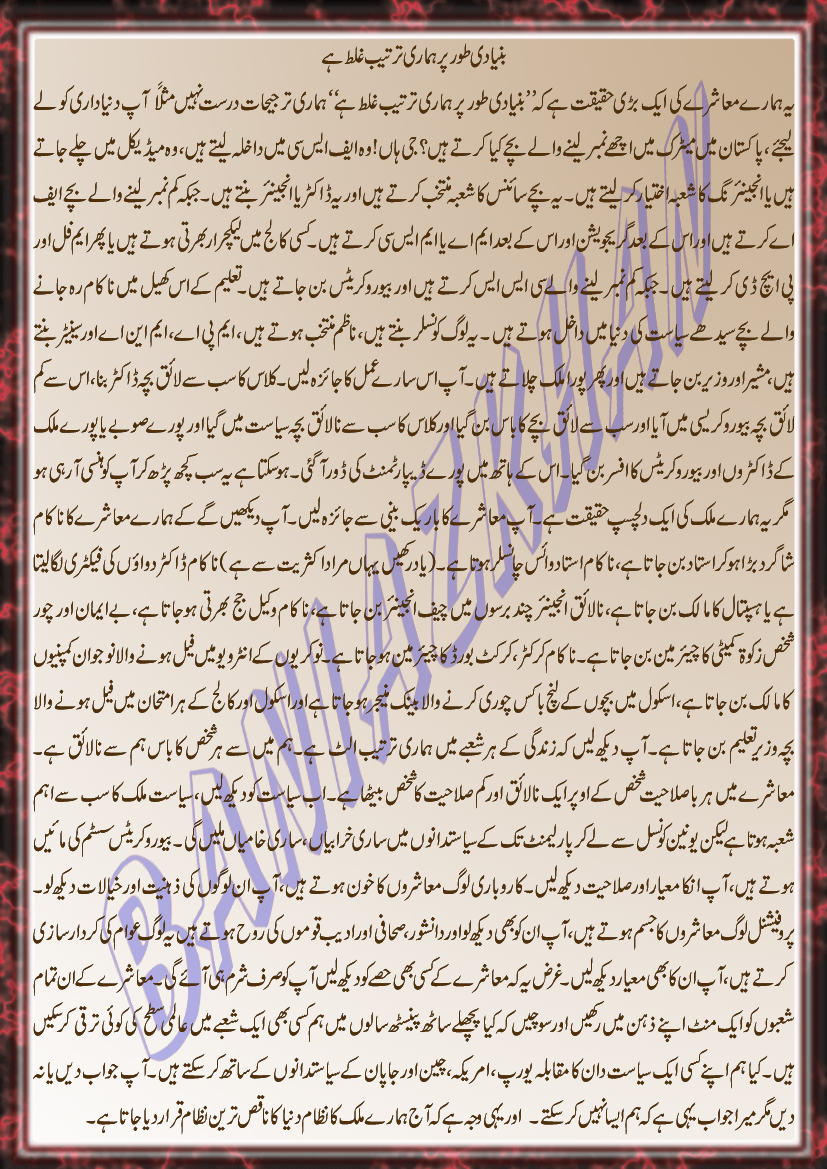 بنیادی طور پر ہماری ترتیب غلط ہے
یہ ہمارے معاشرے کی ایک بڑی حقیقت ہے کہ ’’بنیادی طور پر ہماری ترتیب غلط ہے‘‘ ہماری ترجیحات درست نہیں مثلاً آپ دنیاداری کو لے
لیجئے، پاکستان میں میٹرک میں اچھے نمبر لینے والے بچے کیا کرتے ہیں؟ جی ہاں! وہ ایف ایس سی میں داخلہ لیتے ہیں، وہ میڈیکل میں چلے جاتے
ہیں یا انجینئرنگ کا شعبہ اختیار کر لیتے ہیں۔ یہ بچے سائنس کا شعبہ منتخب کرتے ہیں اور یہ ڈاکٹر یا انجینئر بنتے ہیں۔ جبکہ کم نمبر لینے والے بچے ایف
اے کرتے ہیں اور اس کے بعد گریجویشن اور اس کے بعد ایم اے یا ایم ایس سی کرتے ہیں۔ کسی کالج میں لیکچرار بھرتی ہوتے ہیں یا پھر ایم فل اور
پی ایچ ڈی کر لیتے ہیں۔ جبکہ کم نمبر لینے والے سی ایس ایس کرتے ہیں اور بیوروکریٹس بن جاتے ہیں۔ تعلیم کے اس کھیل میں ناکام رہ جانے
والے بچے سیدھے سیاست کی دنیا میں داخل ہوتے ہیں۔ یہ لوگ کونسلر بنتے ہیں، ناظم منتخب ہوتے ہیں، ایم پی اے، ایم این اے اور سینیٹر بنتے
ہیں، مشیر اور وزیر بن جاتے ہیں اور پھر پورا ملک چلاتے ہیں۔ آپ اس سارے عمل کا جائزہ لیں۔ کلاس کا سب سے لائق بچہ ڈاکٹر بنا، اس سے کم
لائق بچہ بیوروکریسی میں آیا اور سب سے لائق بچے کا باس بن گیا اور کلاس کا سب سے نالائق بچہ سیاست میں گیا اور پورے صوبے یا پورے ملک
کے ڈاکٹروں اور بیوروکریٹس کا افسر بن گیا۔ اس کے ہاتھ میں پورے ڈیپارٹمنٹ کی ڈور آ گئی۔ ہو سکتا ہے یہ سب کچھ پڑھ کر آپ کو ہنسی آ رہی ہو
مگر یہ ہمارے ملک کی ایک دلچسپ حقیقت ہے۔ آپ معاشرے کا باریک بینی سے جائزہ لیں۔ آپ دیکھیں گے کے ہمارے معاشرے کا ناکام
شاگرد بڑا ہو کر استاد بن جاتا ہے، ناکام استاد وائس چانسلر ہوتا ہے۔ (یاد رکھیں یہاں مراد اکثریت سے ہے) ناکام ڈاکٹر دواؤں کی فیکٹری لگا لیتا
ہے یا ہسپتال کا مالک بن جاتا ہے، نالائق انجینئر چند برسوں میں چیف انجینئر بن جاتا ہے، ناکام وکیل جج بھرتی ہو جاتا ہے، بے ایمان اور چور
شخص زکوۃ کمیٹی کا چیئرمین بن جاتا ہے۔ ناکام کرکٹر، کرکٹ بورڈ کا چیئرمین ہو جاتا ہے۔ نوکریوں کے انٹرویو میں فیل ہونے والا نوجوان کمپنیوں
کا مالک بن جاتا ہے، اسکول میں بچوں کے لنچ باکس چوری کرنے والا بینک منیجر ہو جاتا ہے اور اسکول اور کالج کے ہر امتحان میں فیل ہونے والا
بچہ وزیر تعلیم بن جاتا ہے۔ آپ دیکھ لیں کہ زندگی کے ہر شعبے میں ہماری ترتیب الٹ ہے۔ ہم میں سے ہر شخص کا باس ہم سے نالائق ہے۔
معاشرے میں ہر باصلاحیت شخص کے اوپر ایک نالائق اور کم صلاحیت کا شخص بیٹھا ہے۔ اب سیاست کو دیکھ لیں، سیاست ملک کا سب سے اہم
شعبہ ہوتا ہے لیکن یونین کونسل سے لے کر پارلیمنٹ تک کے سیاستدانوں میں ساری خرابیاں، ساری خامیاں ملیں گی۔ بیوروکریٹس سسٹم کی مائیں
ہوتے ہیں، آپ انکا معیار اور صلاحیت دیکھ لیں۔ کاروباری لوگ معاشروں کا خون ہوتے ہیں، آپ ان لوگوں کی ذہنیت اور خیالات دیکھ لو۔
پروفیشنل لوگ معاشروں کا جسم ہوتے ہیں، آپ ان کو بھی دیکھ لو اور دانشور، صحافی اور ادیب قوموں کی روح ہوتے ہیں یہ لوگ عوام کی کردار سازی
کرتے ہیں، آپ ان کا بھی معیار دیکھ لیں۔ غرض یہ کہ معاشرے کے کسی بھی حصے کو دیکھ لیں آپ کو صرف شرم ہی آئے گی۔ معاشرے کے ان تمام
شعبوں کو ایک منٹ اپنے ذہن میں رکھیں اور سوچیں کہ کیا پچھلے ساٹھ پینسٹھ سالوں میں ہم کسی بھی ایک شعبے میں عالمی سطح کی کوئی ترقی کر سکیں
ہیں۔ کیا ہم اپنے کسی ایک سیاست دان کا مقابلہ یورپ، امریکہ، چین اور جاپان کے سیاستدانوں کے ساتھ کر سکتے ہیں۔ آپ جواب دیں یا نہ
دیں مگر میرا جواب یہی ہے کہ ہم ایسا نہیں کر سکتے۔ اور یہی وجہ ہے کہ آج ہمارے ملک کا نظام دنیا کا ناقص ترین نظام قرار دیا جاتا ہے۔
BANIAZKHAN